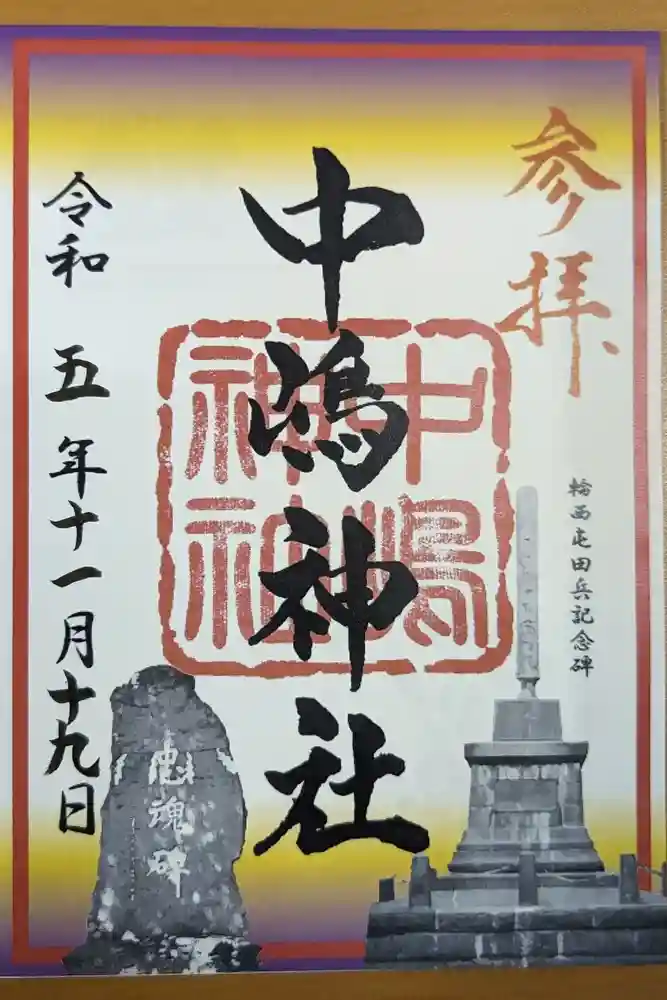 参拝
輪西屯田兵記念碑
中嶋神社
中嶋
神社
忠魂碑
令和五年十一月十九日